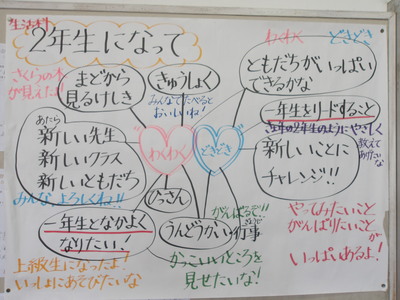 生活科
2年生になって
わくわく
どきどき
さくらの木
が見えたよ!
まどから
見るけしき
きゅうしょく
みんなでたべると
おいしいね!
ともだちが いっぱい
できるかな
一年生をリードすること
去年の2年生のようにやさしく
教えて
あげたいな
あたら
新しい先生
新しいクラス
新しいともだち
みんな、よろしくね!!
わくわく
どきどき
新しいことに
チャレンジ!!
ひっさん
一年生となかよく
なりたい!
うんどうかい
がんばるぞ!!
行事
かっこいいところを
見せたいな!
上級生になったよ!
いっしょにあそびたいな
やってみたいこと
がんばりたいこと
が
いっぱいあるよ!